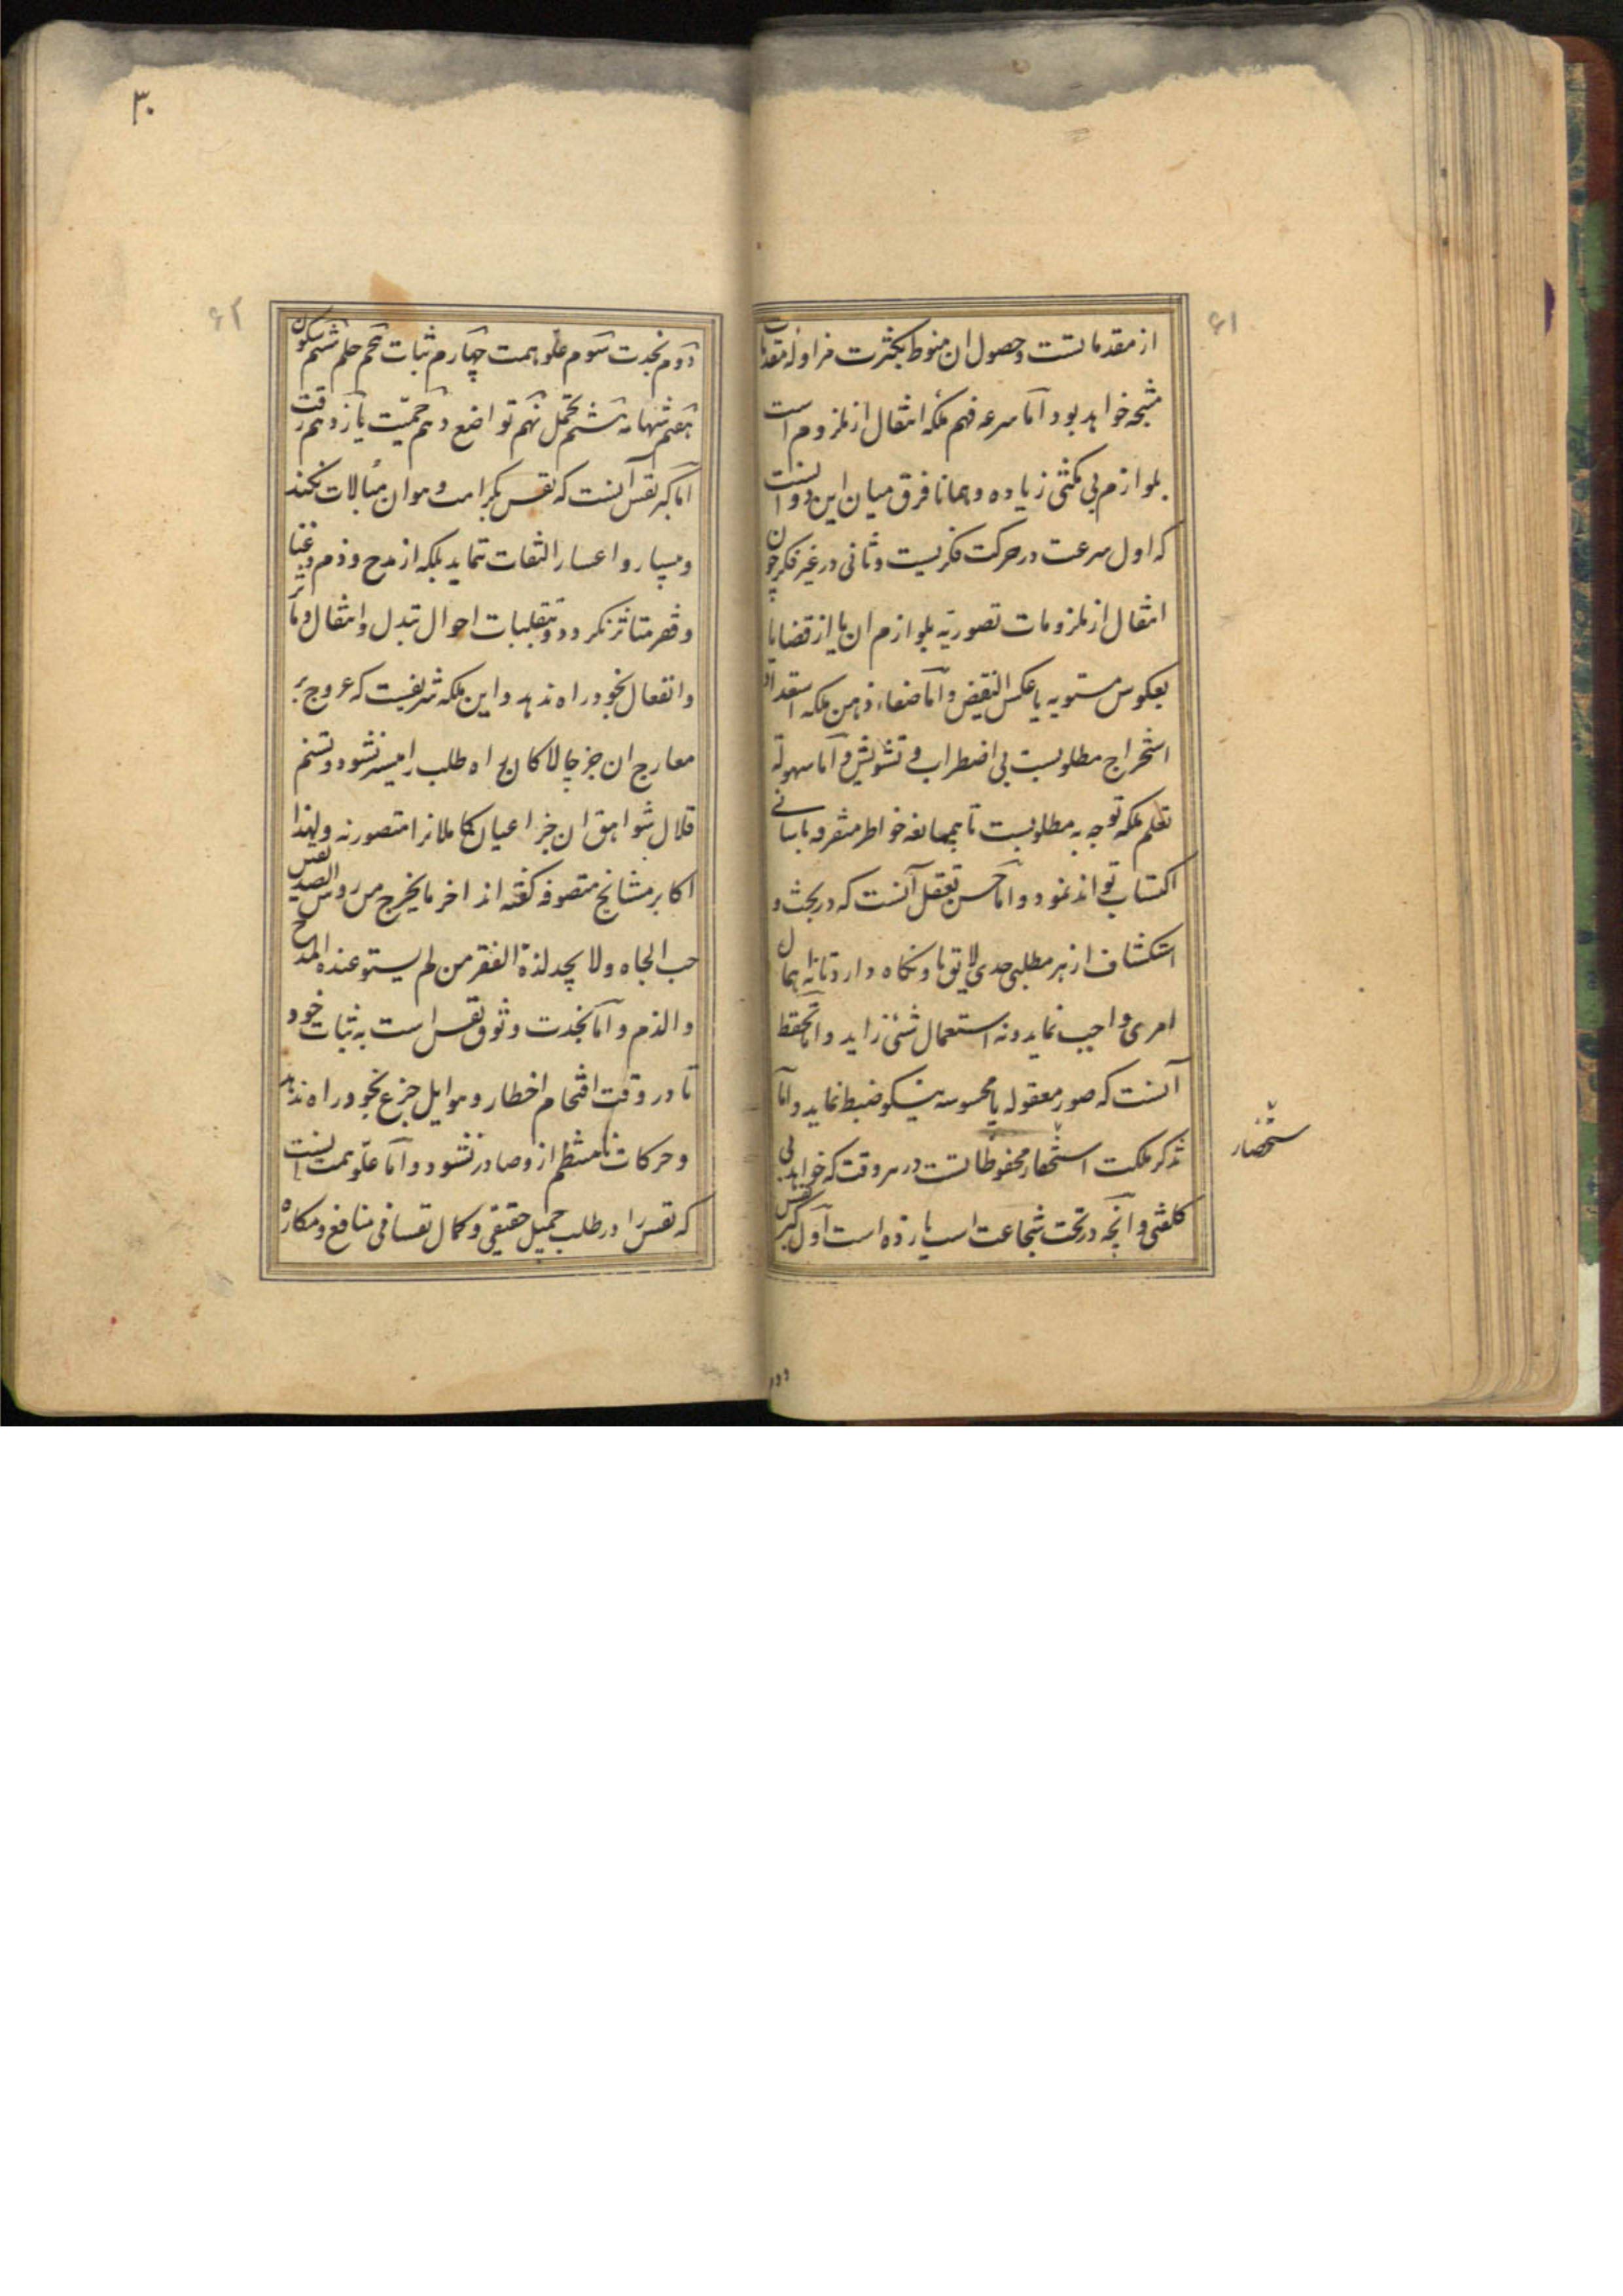 ۶۱
از مقدماتست و حصول ان منوط بکثرت مزاوله مقدمات
منتجه خواهد بود اما سرعه فهم ملکه انتقال از ملزوم است
بلوازم بی مکثی زیاده و همانا فرق میان این دو انست
که اول سرعت در حرکت فکریست و ثانی در غیر فکر چون
انتقال از ملزومات تصوریه بلوازم ان یا از قضایا
بعکوس مستویه یا عکس النقیض و اما صفاء ذهن ملکه استعداد
استخراج مطلوبست بی اضطراب و تشویش و اما سهولة
تعلم ملکه توجه به مطلوبست تا بیممانعه خواطر متفرقه باسانی
اکتساب تواند نمود و اما حسن تعقل آنست که در بحث و
استکشاف از هر مطلبی حدی لایق باو نگاه دارد تا نه اهمال
امری واجب نماید و نه استعمال شئی زاید و اما تحفظ
آنست که صور معقوله یا محسوسه نیکو ضبط نماید و اما
تذکر ملکت استحصار محفوظاتست در هر وقت که خواهد بی
کلفتی و آنچه در تحت شجاعت است یازده است اول کبر نفس
ستحضار
۳۰
۶۲
دوم نجدت سوم علو همت چهارم ثبات پنجم حلم ششم سکون
هفتم شهامه هشتم تحمل نهم تواضع دهم حمیّت یازدهم رقت
اما کبر نفس آنست که نفس بکرامت و هوان مبالات نکند
و بیسار و اعسار التفات ننماید بلکه از مدح و ذم و غنا
و فقر متاثر نکردد و بتقلبات احوال تبدل و انتقال و تأثر
و انفعال بخود راه ندهد و این ملکه شریفیست که عروج بر
معارج ان جز چالاکان راه طلب را میسر نشود و تسنم
قلال شواهق ان جز اعیان کاملانرا متصور نه و لهذا
اکابر مشایخ متصوفه کفته اند اخر ما یخرج من رؤس الصدیقین
حب الجاه و لا یجد لذة الفقر من لم یستو عنده المدح
و الذم و اما نجدت وثوق نفس است به ثبات خود
تا در وقت اقتحام اخطار و هوایل جزع بخود راه ندهد
و حرکات نامنتظم از و صادر نشود و اما علو همت انست
که نفس را در طلب جمیل حقیقی و کمال نفسانی منافع و مکاره